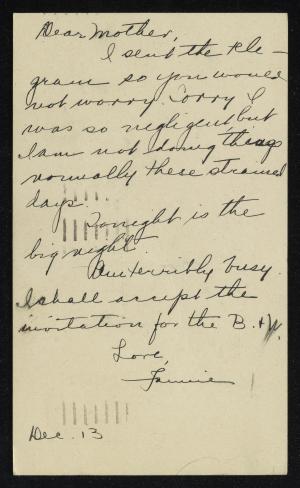 Dear Mother,
I sent the tele-
gram so you would
not worry. Sorry I
was so negligent, but
I am not doing things
normally these strained
days.
Tonight is the
big night.
Am terribly busy.
I shall accept the
invitation for the B. & W.
Love,
Dec. 13